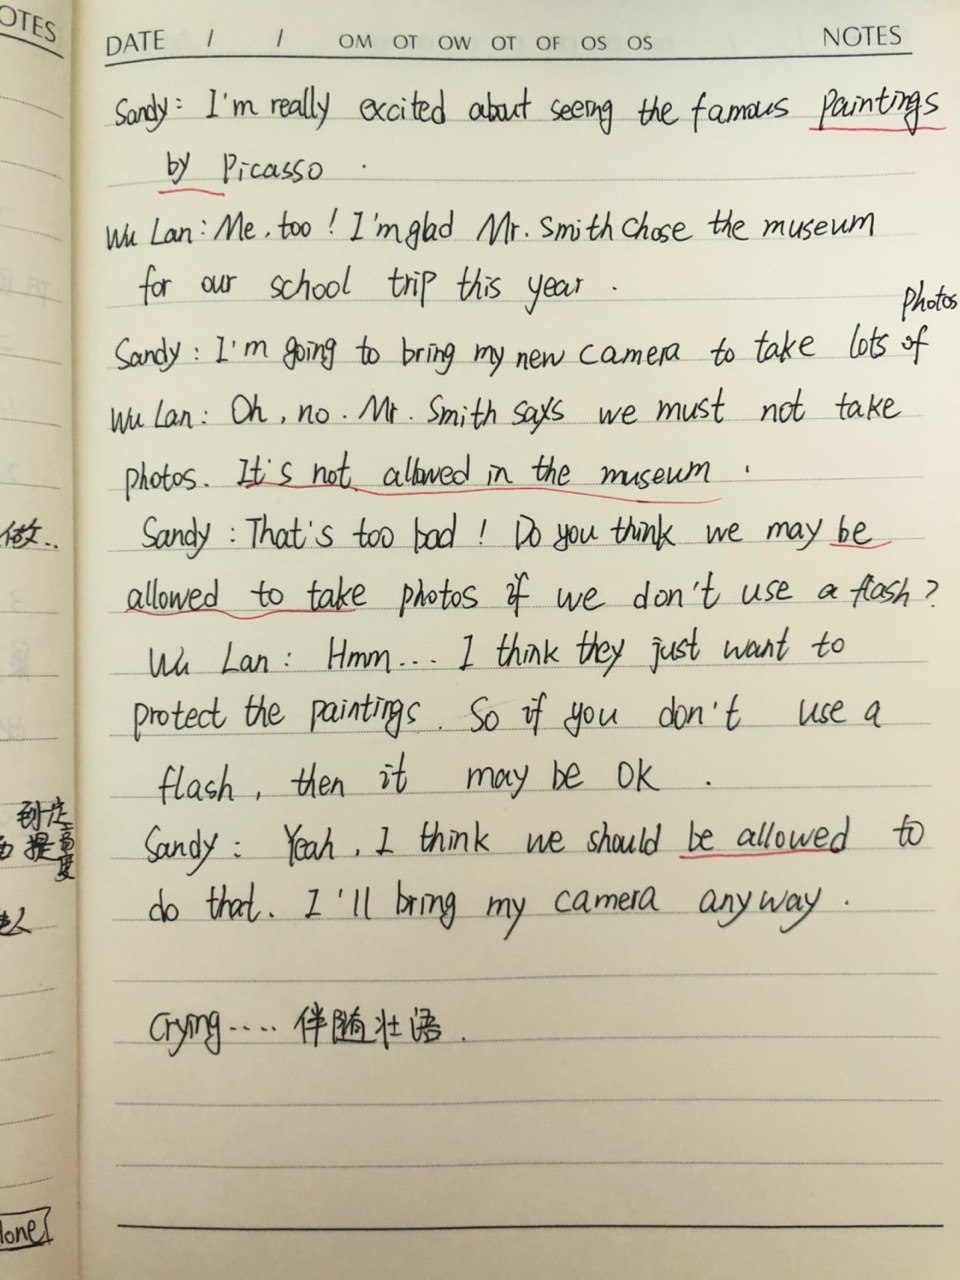 OTES
DATE / / OM OT OW OT OF OS OS NOTES
Sandy: I'm really excited about seeing the famous paintings
by Picasso .
Wu Lan: Me, too! I'm glad Mr. Smith chose the museum
for our school trip this year .
photos
Sandy: I'm going to bring my new camera to take lots of
Wu Lan: Oh, no. Mr. Smith says we must not take
photos. It's not allowed in the museum .
Sandy: That's too bad! Do you think we may be
allowed to take photos if we don't use a flash?
Wu Lan: Hmm... I think they just want to
protect the paintings. So if you don't use a
flash, then it may be OK .
Sandy: Yeah, I think we should be allowed to
do that. I'll bring my camera anyway .
Crying..... 伴随壮语.
做..
lone